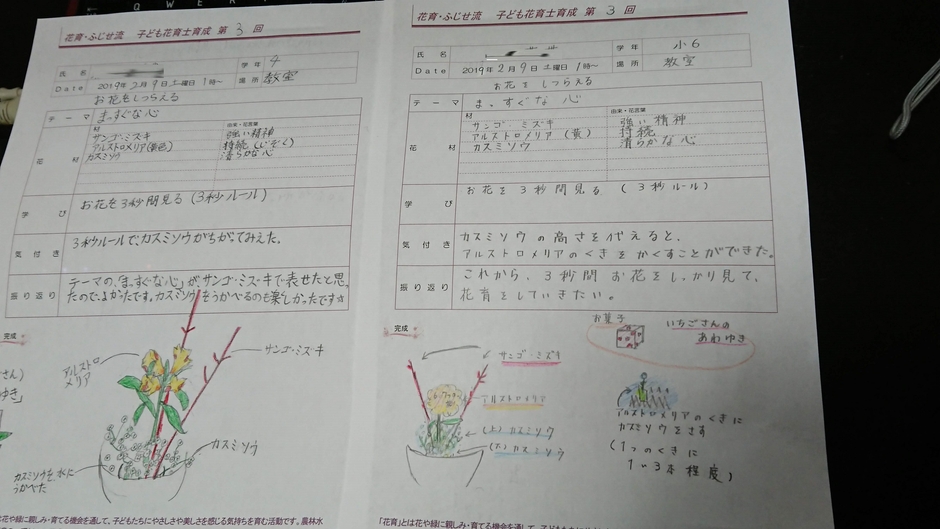 花育・ふじせ流 子ども花育士育成 第 3 回
氏名
学年 4
Date 2019年 2月 9日 土曜日 1時~
場所 教室
お花をしつらえる
テーマ まっすぐな心
花材
材
由来・花言葉
サンゴ・ミズキ 強い精神
アルストロメリア(黄色) 持続(じぞく)
カスミソウ 清らかな心
学び お花を3秒間見る(3秒ルール)
気付き 3秒ルールで、カスミソウがちがってみえた。
振り返り テーマの、「まっすぐな心」が、サンゴ・ミズ・キで表せたと思
たので、よかったです。カスミソウをうかべるのも楽しかったです
完成
さん)
ゆき」
アルストロ
メリア
サンゴ・ミズ・キ
カスミソウ
カスミソウを水に
うかべた
は花や緑に親しみ・育てる機会を通して、子どもたちにやさしさや美しさを感じる気持ちを育む活動です。農林水
花育・ふじせ流 子ども花育士育成 第 3 回
氏名
学年 小6
Date 2019年 2月 9日 土曜日 1時~
場所 教室
お花をしつらえる
テーマ まっすぐな心
花材
材
由来・花言葉
サンゴ・ミズキ 強い精神
アルストロメリア(黄) 持続
カスミソウ 清らかな心
学び お花を3秒間見る(3秒ルール)
気付き カスミソウの高さを代えると、
アルストロメリアのくきをかくすことができた。
振り返り これから、3秒間お花をしっかり見て、
花育をしていきたい。
完成
お菓子
いちごさんの
あわゆき
サンゴ・ミズキ
アルストロメリア
(上)カスミソウ
(下)カスミソウ
アルストロメリアのくきに
カスミソウをさす
(1つのくきに
1~3本程度)
「花育」とは花や緑に親しみ・育てる機会を通して、子ども